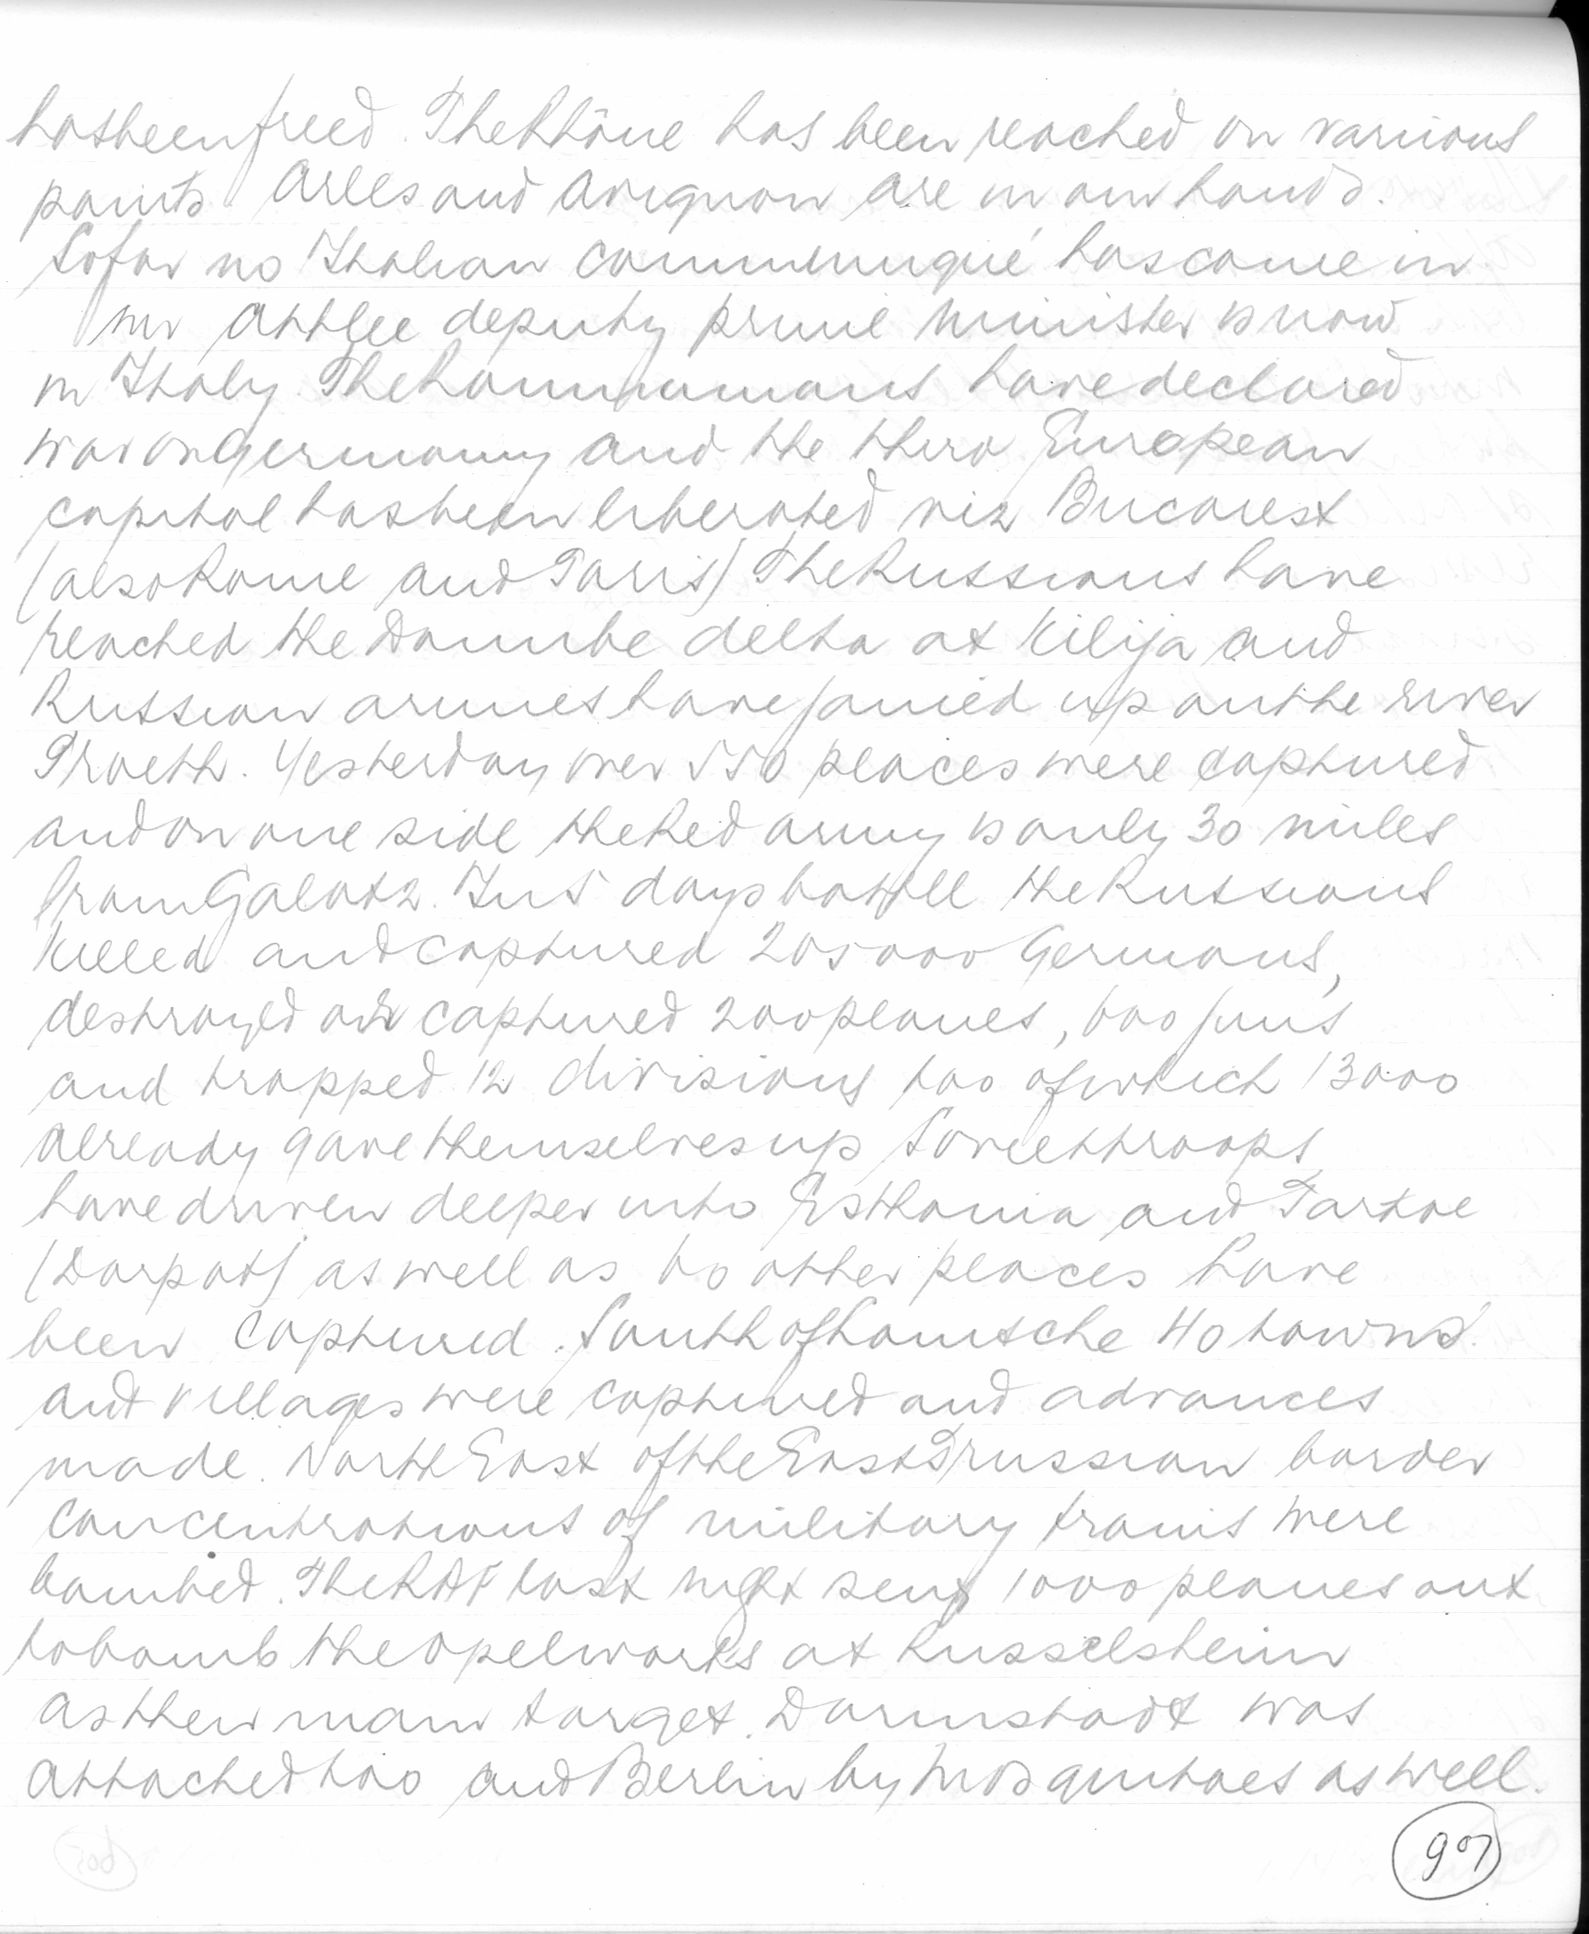 has been freed. The Rhône has been reached on various
points Arles and Avignon are in our hands.
Sofar no Italian communiqué has come in.
Mr Attlee deputy prime minister is now
in Italy. The Roumanians have declared
war on Germany and the third European
capital has been liberated viz Bucarest
(also Rome and Paris) The Russians have
reached the Danube delta at Kilija and
Russian armies have joined up on the river
Proeth. Yesterday over 550 places were captured
and on one side the Red army is only 30 miles
from Galatz. In 5 days battle the Russians
killed and captured 205000 Germans,
destroyed or captured 200 planes, 600 guns
and trapped 12 divisions too of which 13000
already gave themselves up Soviet troops
have driven deeper into Esthonia and Tartoe
(Dorpat) as well as 60 other places have
been captured. South of Lomsche 40 towns
and villages were captured and advances
made. North East of the East Prussian border
concentrations of military trains were
bombed. The RAF last night sent 1000 planes out
to bomb the Opelworks at Russelsheim
as their main target. Darmstadt was
attacked too and Berlin by Mosquitoes as well.
907